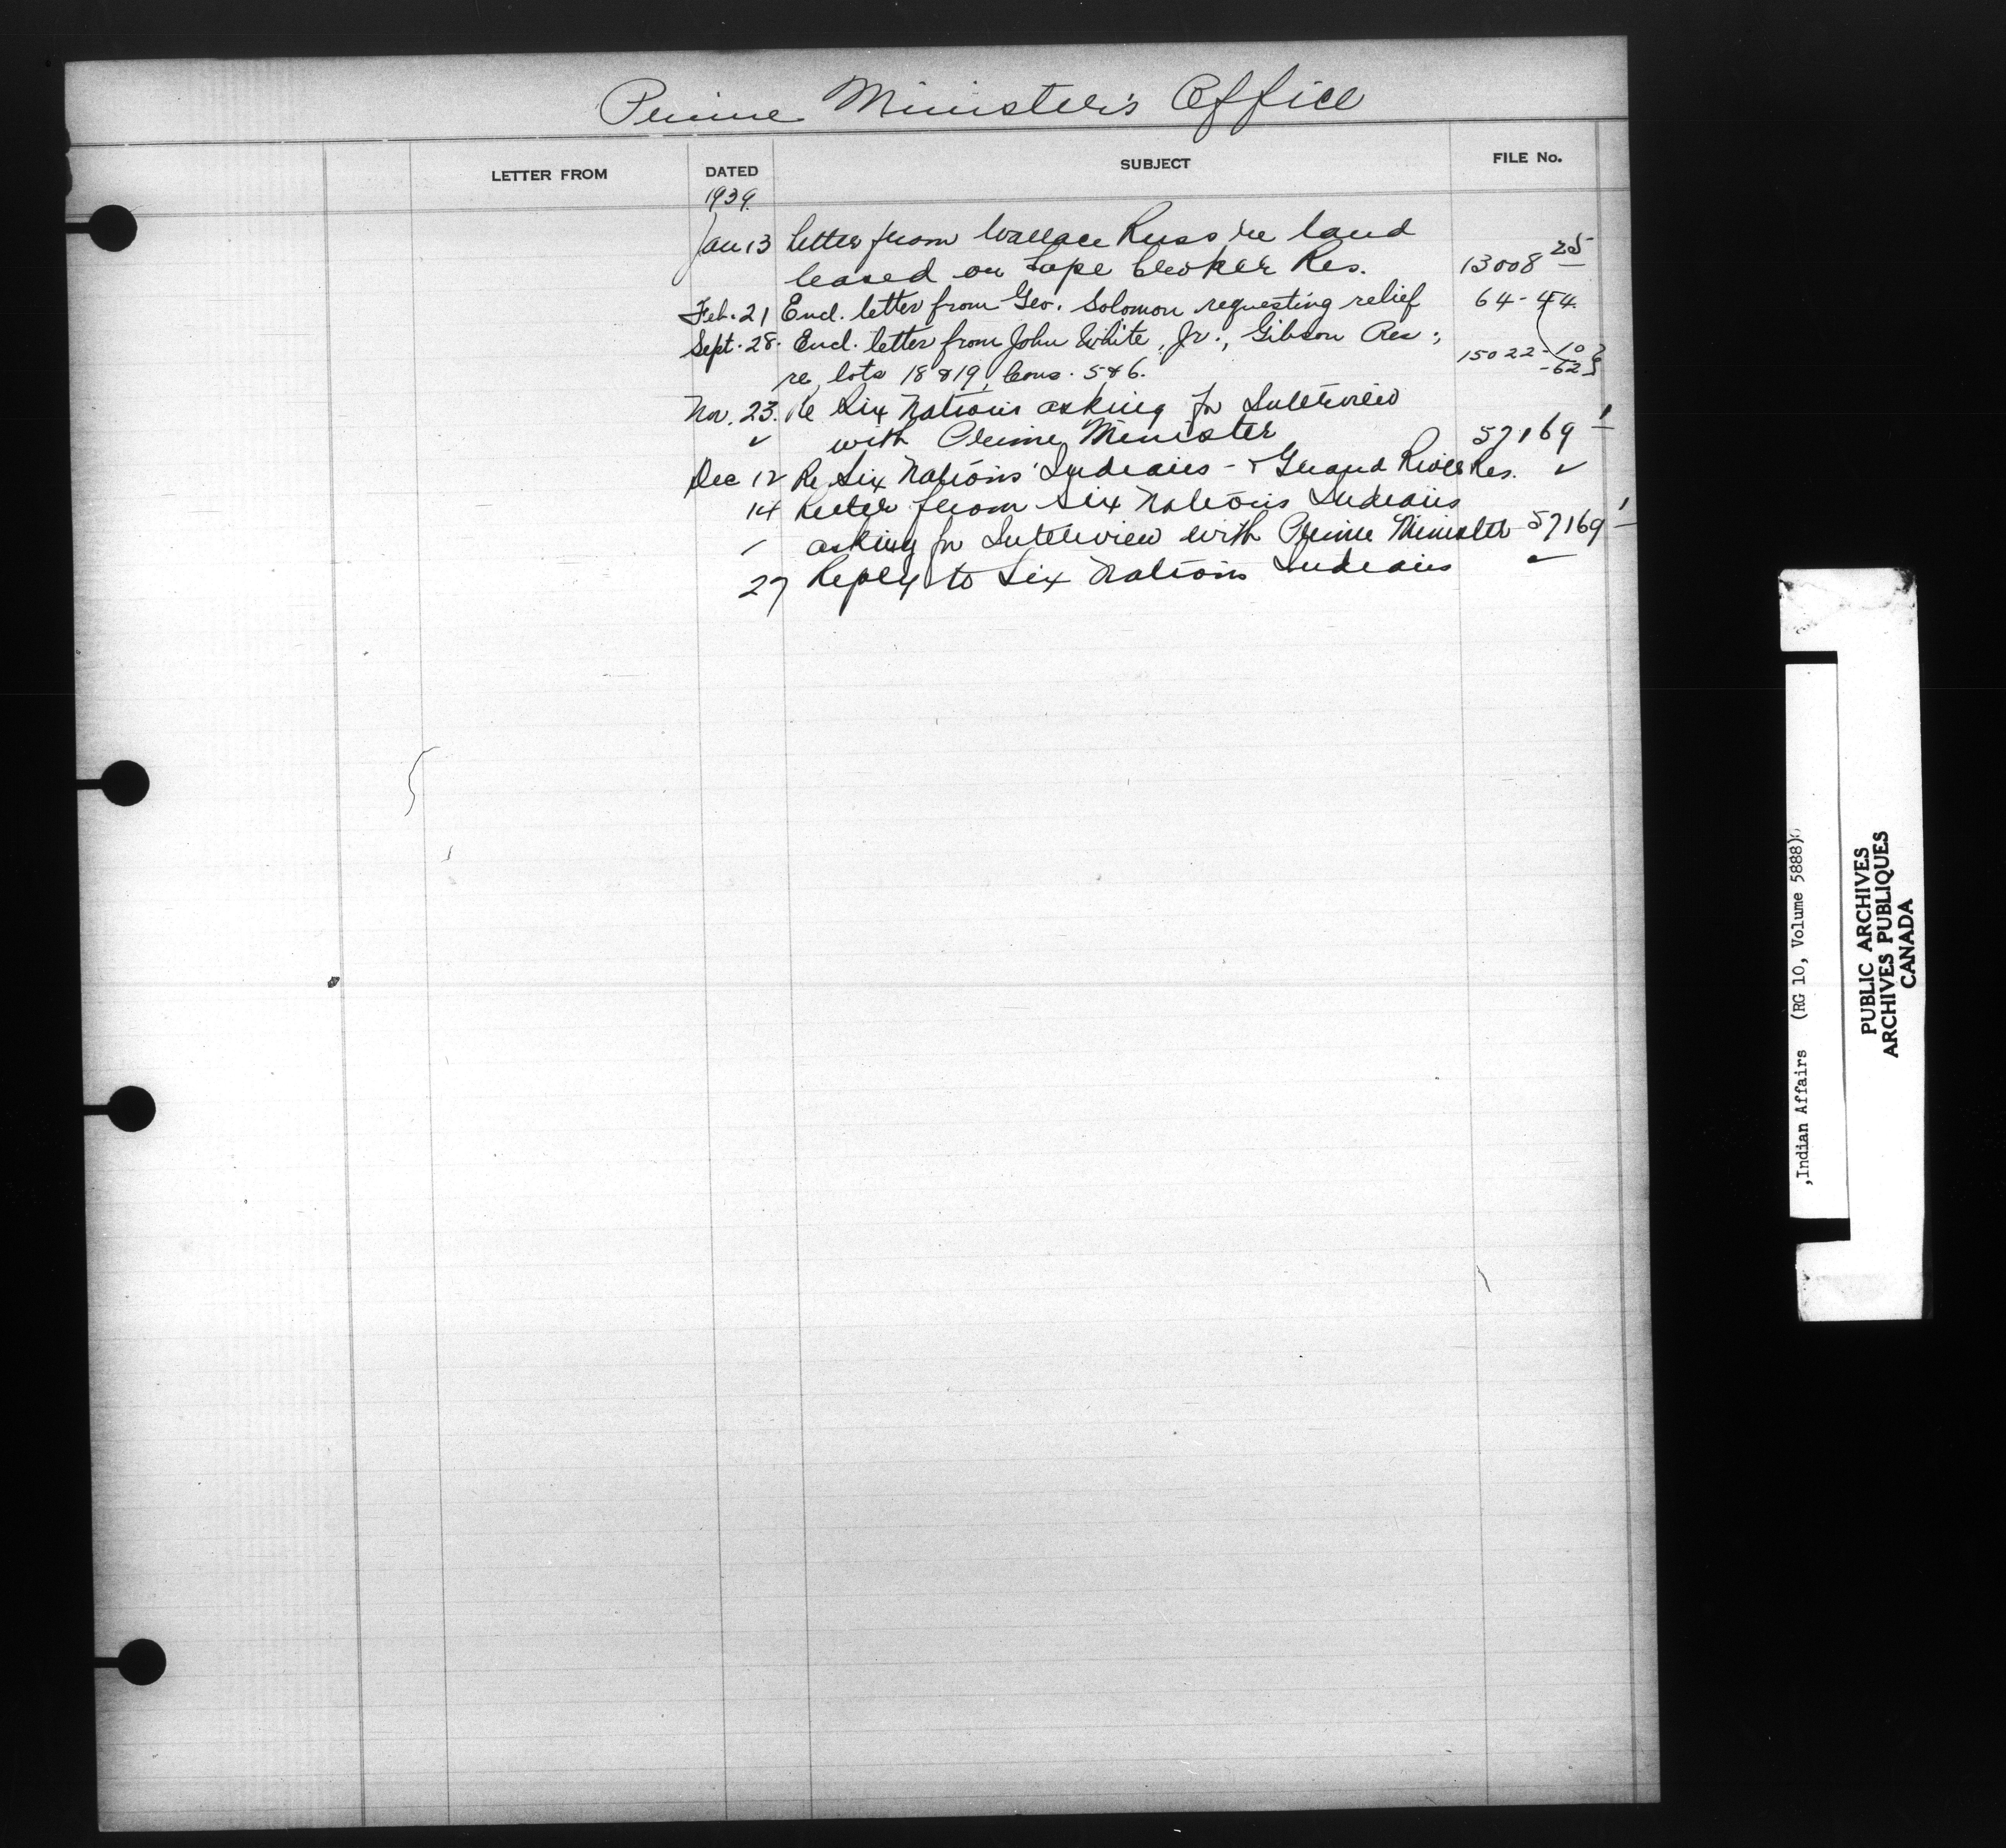 Prime Minister's Office
LETTER FROM DATED SUBJECT FILE No.
1939.
Jan 13 Letter from Wallace Russ re land
leased on Cape Croker Res. 13008 25
Feb. 21 Encl. letter from Geo. Solomon requesting relief 64-44.
Sept. 28. Encl. letter from John White, Jr., Gibson Res;
re lots 18 & 19, Cons. 5 & 6. 15022-10
-62
Nov. 23. Re Six Nations asking for Interview
✓ with Prime Minister 57169 1
Dec 12 Re Six Nations Indians - Grand River Res. ✓
14 Letter from Six Nations Indians
asking for Interview with Prime Minister 57169 1
27 Reply to Six Nations Indians ✓
,Indian Affairs (RG 10, Volume 5888)
PUBLIC ARCHIVES
ARCHIVES PUBLIQUES
CANADA